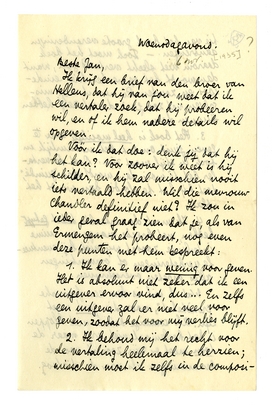 Woensdagavond.
[1935]
?
Beste Jan,
Ik krijg een brief van den broer van
Hellens, dat hij van jou weet dat ik
een vertaler zoek, dat hij probeeren
wil, en of ik hem nadere details wil
opgeven.
Vóór ik dat doe: denk jij dat hij
het kan? Voor zoover ik weet is hij
schilder en hij zal misschien nooit
iets vertaald hebben. Wil die mevrouw
Chandler definitief niet? Ik zou in
ieder geval graag zien dat je, als van
Ermengem het probeert, nog even
deze punten met hem bespreekt:
1. Ik kan er maar weinig voor geven.
Het is absoluut niet zeker dat ik een
uitgever ervoor vind, dus... En zelfs
een uitgever zal er niet veel voor
geven, zoodat het voor mij verlies blijft.
2. Ik behoud mij het recht voor
de vertaling heelemaal te herzien;
misschien moet ik zelfs in de composi-